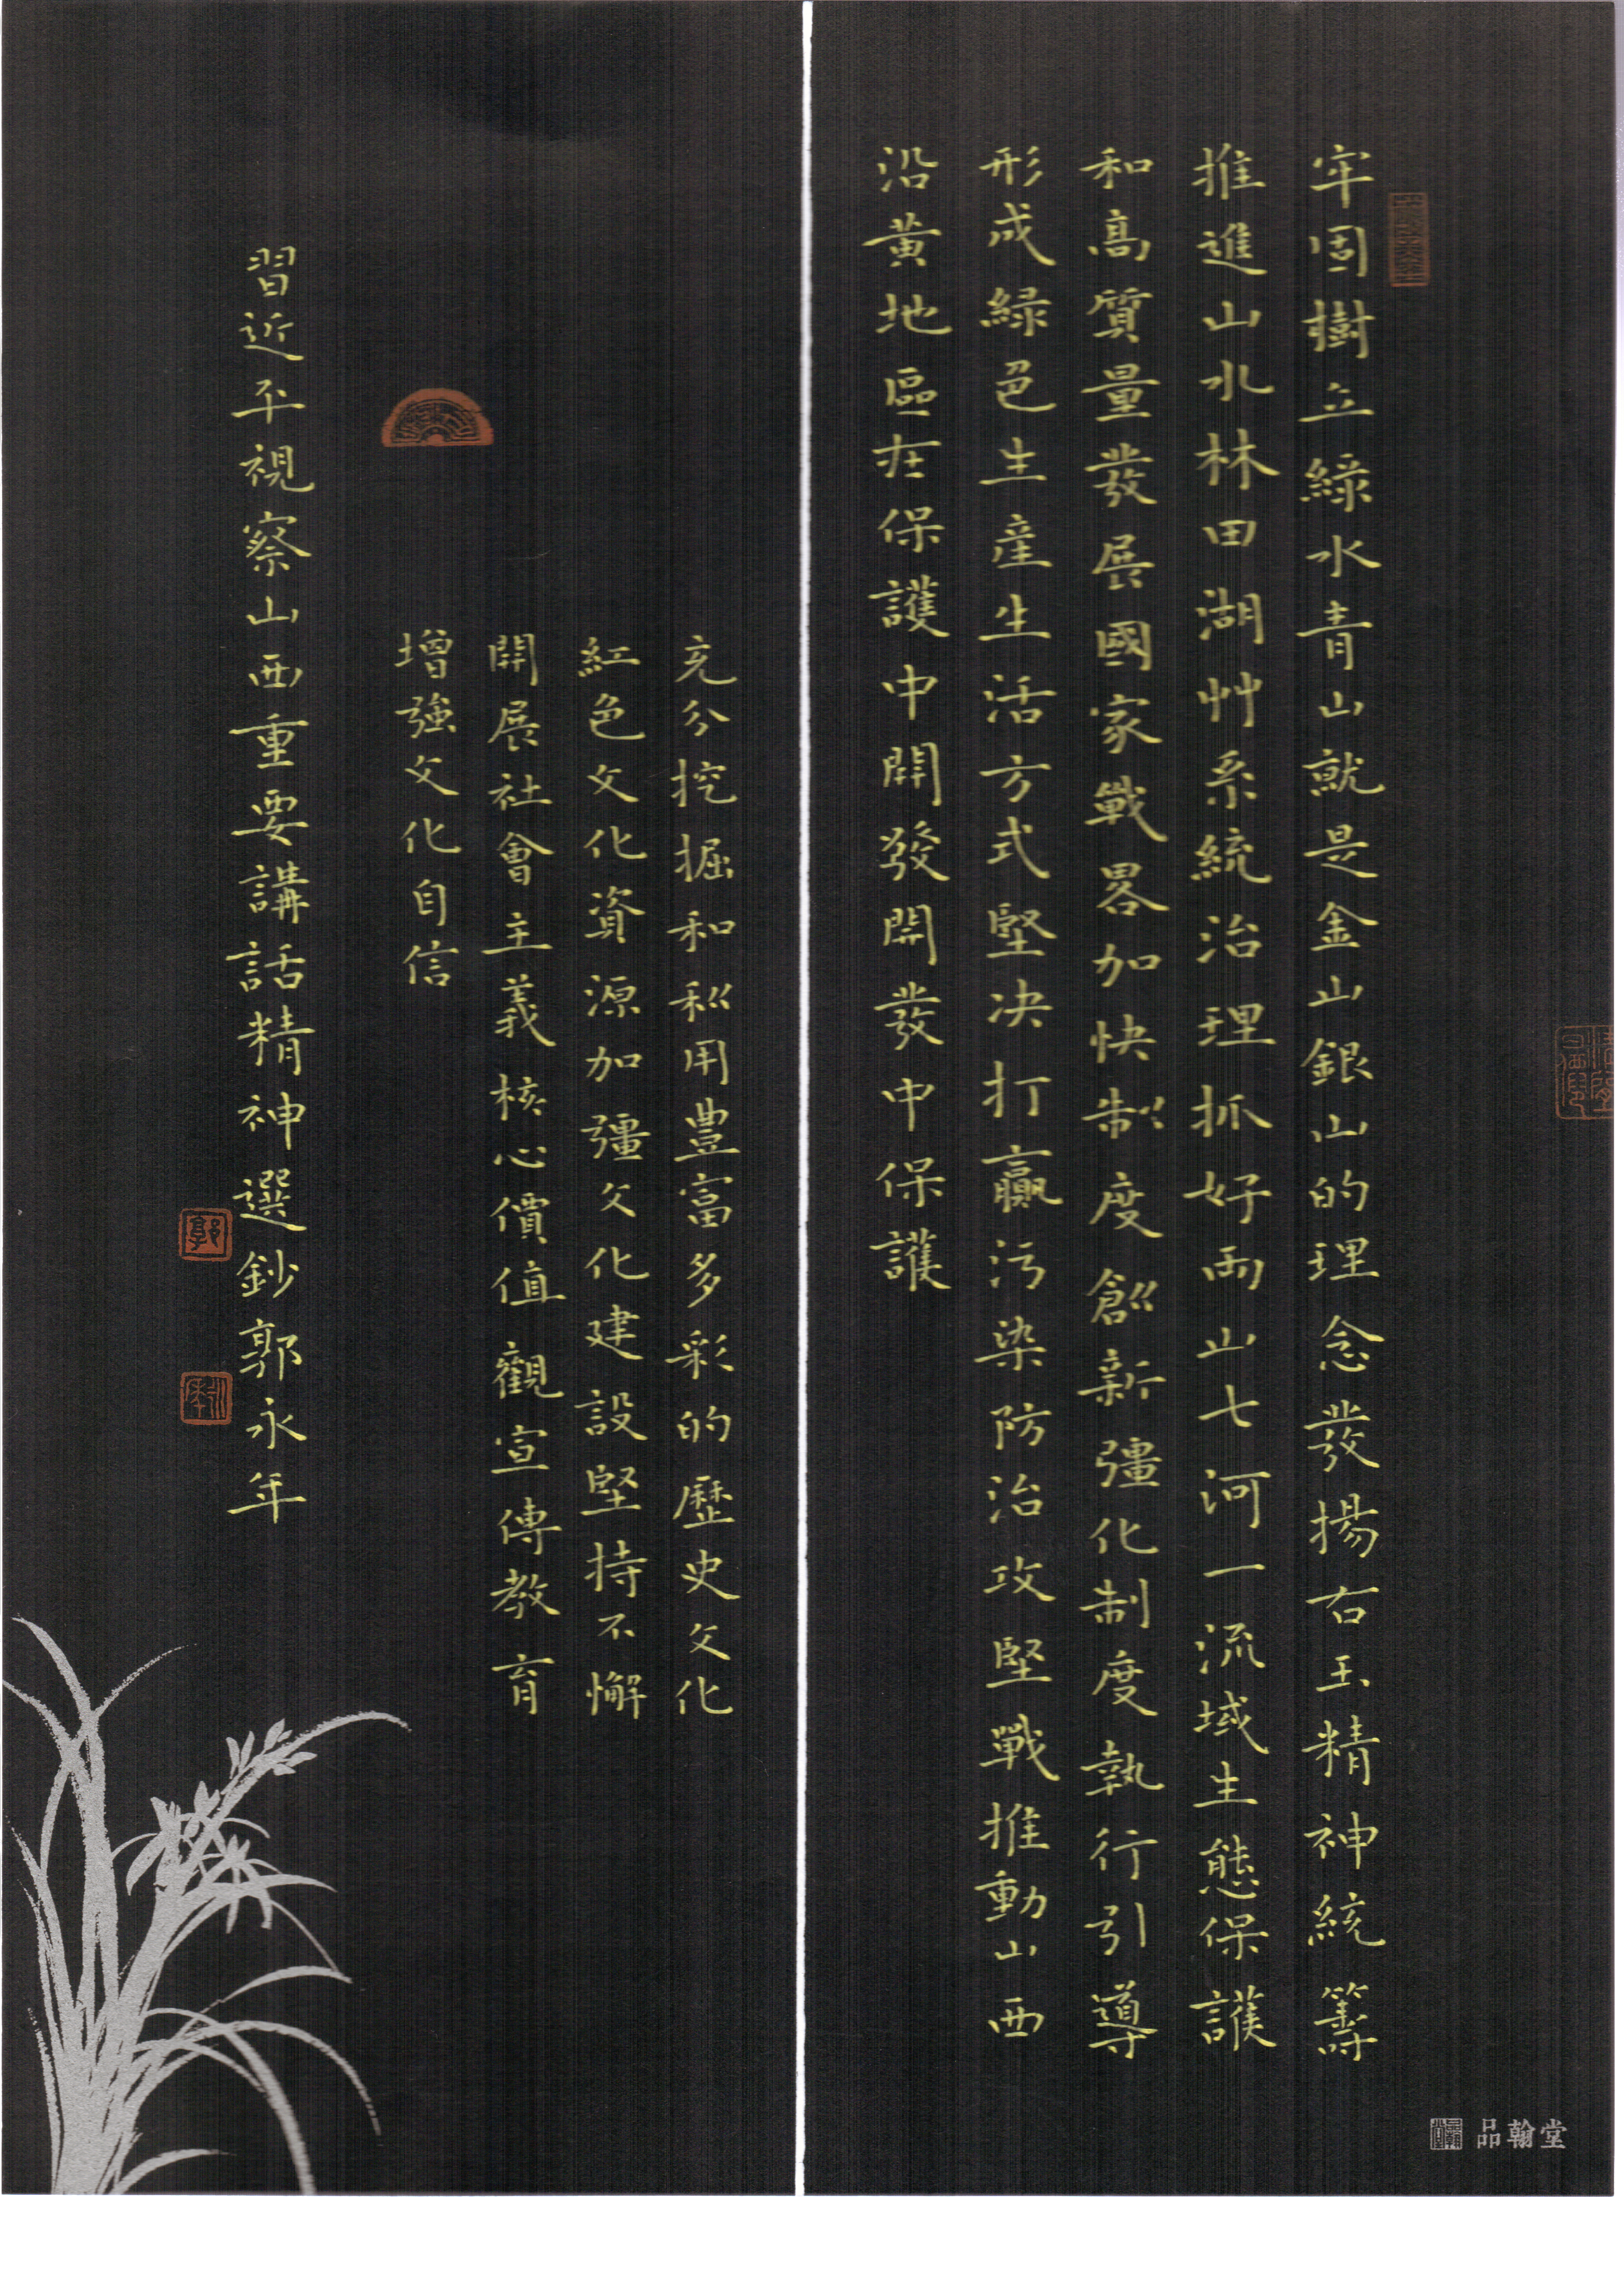 牢固樹立綠水青山就是金山銀山的理念發揚右玉精神統籌
推進山水林田湖艸系統治理抓好兩山七河一流域生態保護
和高質量發展國家戰畧加快制度創新彊化制度執行引導
形成緑色生産生活方式堅决打贏污染防治攻堅戰推動山西
沿黄地區在保護中開發開發中保護
充分挖掘和利用豊富多彩的歷史文化
紅色文化資源加彊文化建設堅持不懈
開展社會主義核心價值觀宣傳教育
增強文化自信
習近平視察山西重要講話精神選鈔郭永年
郭
永年
品翰堂